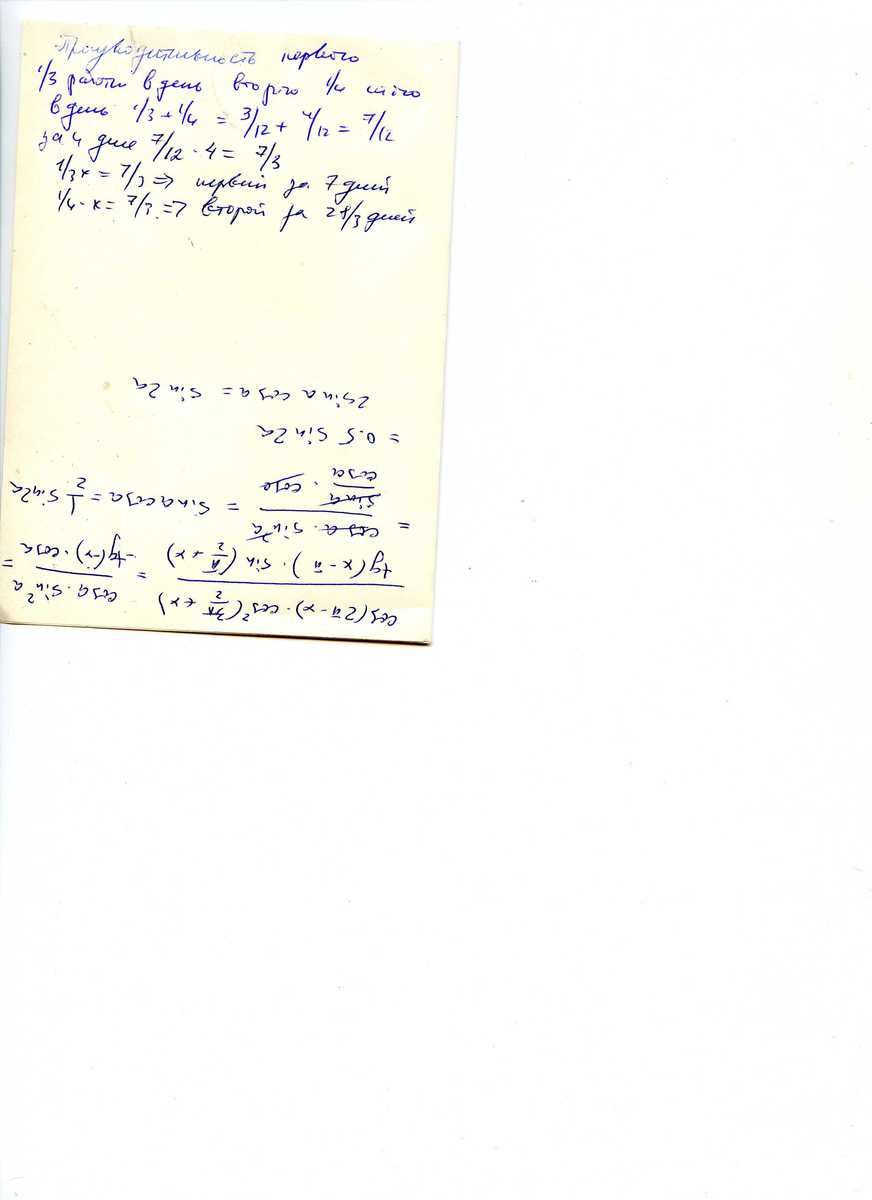 Производительность первого
1/3 работы в день второго 1/4 итого
в день 1/3 + 1/4 = 3/12 + 4/12 = 7/12
за 4 дня 7/12 · 4 = 7/3
1/3 x = 7/3 => первый за 7 дней
1/4 · x = 7/3 => второй за 28/3 дней
cos(2π-x)·cos²(3π/2+x) / tg(x-π)·sin(π/2+x) = cosa·sin²a / -tg(-x)·cosa =
= cosa·sin²a / sina/cosa · cosa = sinacosa = 1/2 sin2a
= 0.5 sin2a
2sinacosa = sin2a